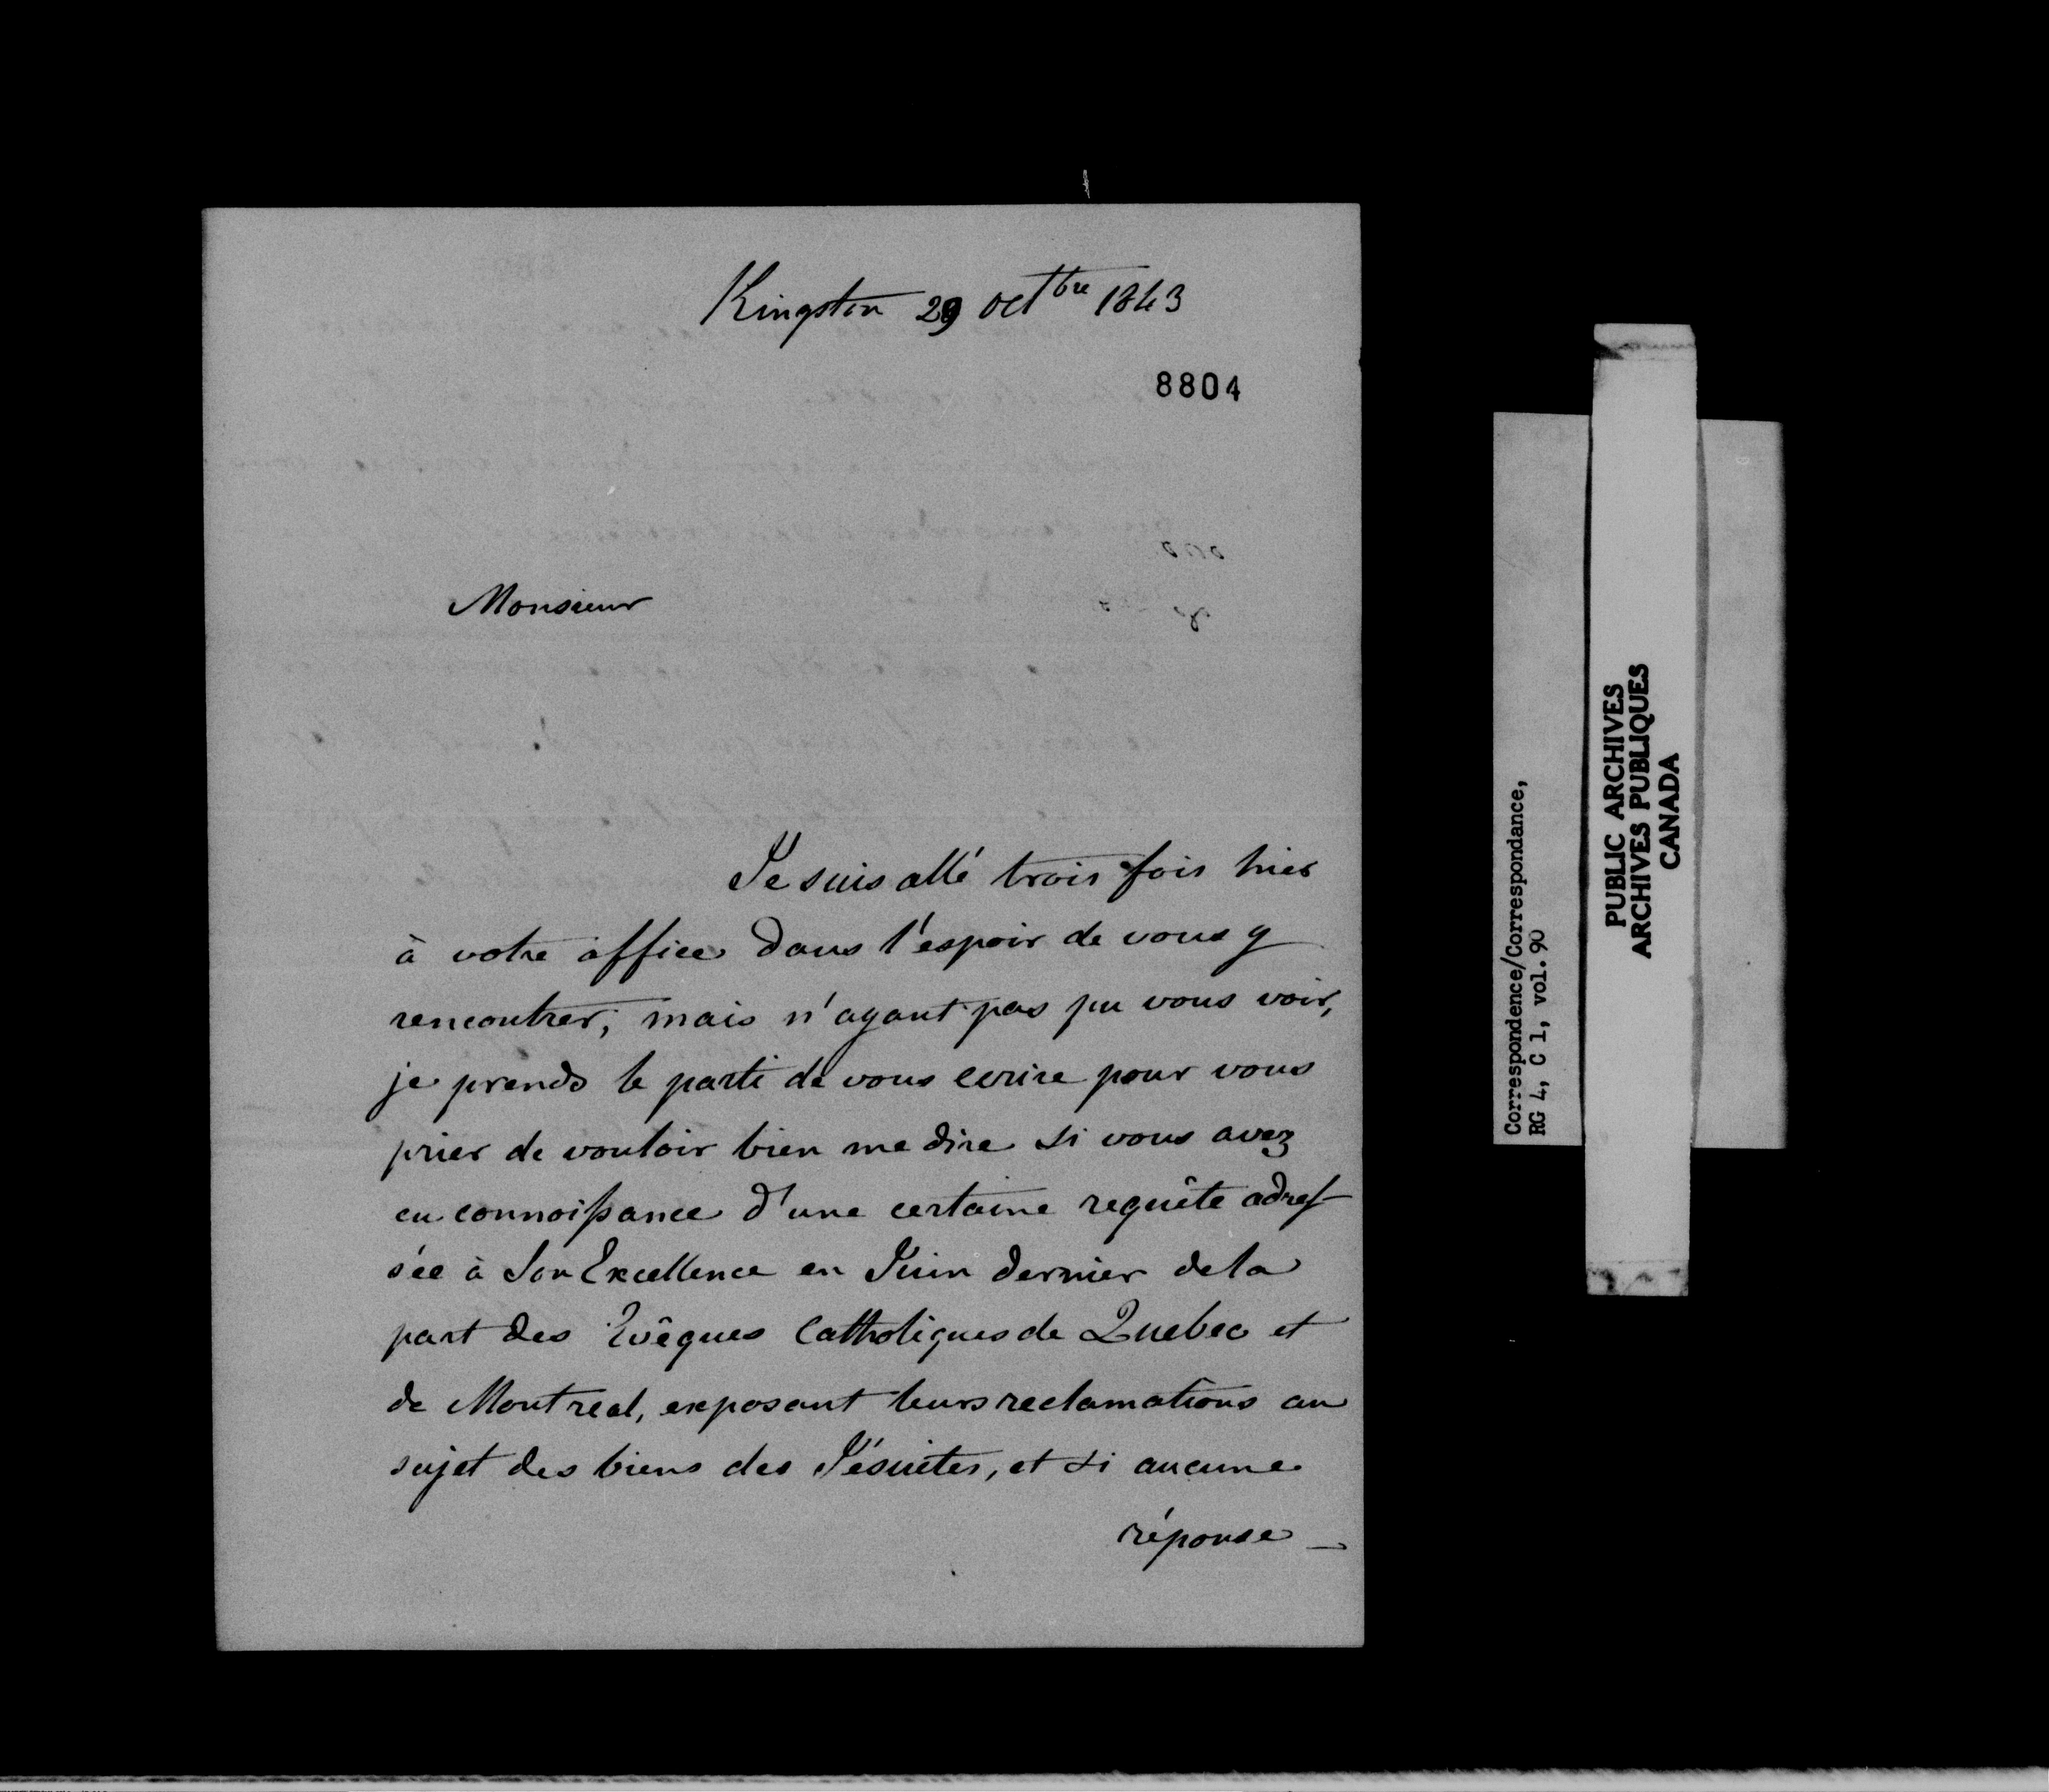 Kingston 29 octbre 1843
8804
Monsieur
Je suis allé trois fois hier
à votre office dans l'espoir de vous y
rencontrer, mais n'ayant pas pu vous voir,
je prends le parti de vous ecrire pour vous
prier de vouloir bien me dire si vous avez
eu connoissance d'une certaine requête adres
sée à Son Excellence en Juin dernier de la
part des Evêques Catholiques de Quebec et
de Montreal, exposant leurs reclamations au
sujet des biens des Jésuites, et si aucune
réponse _
Correspondence/Correspondance,
RG 4, C 1, vol. 90
PUBLIC ARCHIVES
ARCHIVES PUBLIQUES
CANADA